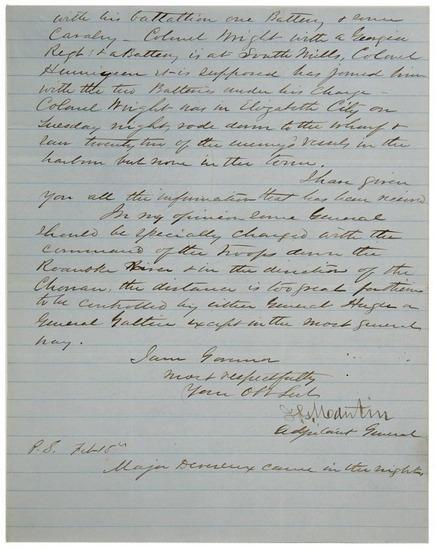 with his battallion one Battery & some
Cavalry – Colonel Wright with a Georgia
Regt & a Battery is at South Mills, Colonel
Henningsen it is supposed has joined him
with the two Batteries under his Charge –
Colonel Wright was in Elizabeth City on
Tuesday night, rode down to the wharf &
saw twenty two of the enemy's vessels in the
harbour but none in the town.
I have given
you all the information that has been received
In my opinion some General
should be specially charged with the
command of the Troops down the
Roanoke River & in the direction of the
Chowan, the distance is too great for them
to be controlled by either General Huger or
General Gatlin except in the most general
way.
I am Governor
most respectfully
Your Obt Svt
J G Martin
Adjutant General
P.S. Feb
Major Devereux came in the night